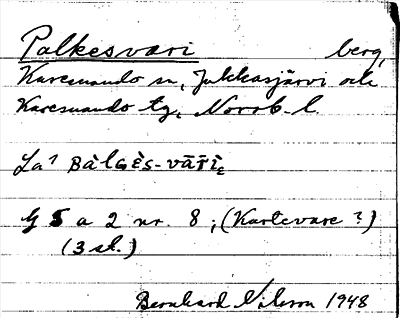 Palkesvari berg,
Karesuando sn, Jukkasjärvi och
Karesuando tg, Norrb. l.
La? BàlGès-vāri
G 5 a 2 nr. 8; (Kartevare?)
(3 st.)
Bernhard Nilsson 1948